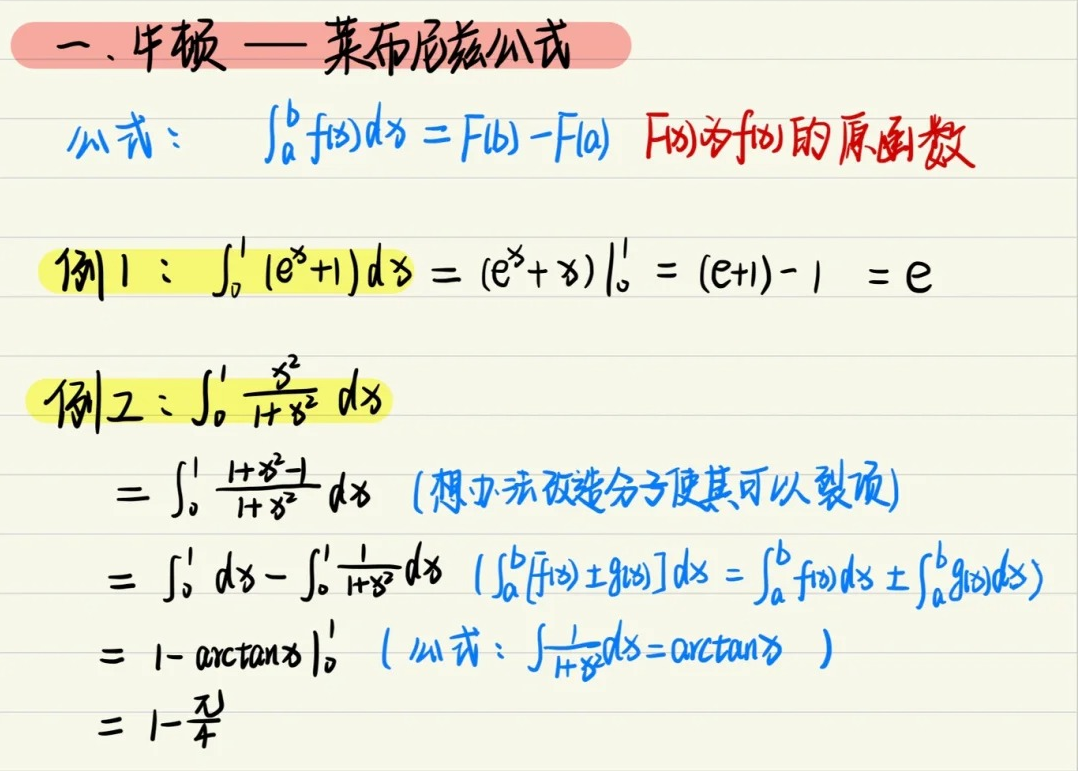 一、牛顿——莱布尼兹公式
公式： ∫_a^b f(x)dx = F(b) - F(a) F(x)为f(x)的原函数
例1： ∫_0^1 (e^x+1)dx = (e^x+x)|_0^1 = (e+1) - 1 = e
例2： ∫_0^1 x²/(1+x²) dx
= ∫_0^1 (1+x²-1)/(1+x²) dx (想办法改造分子使其可以裂项)
= ∫_0^1 dx - ∫_0^1 1/(1+x²) dx (∫_a^b [f(x)±g(x)]dx = ∫_a^b f(x)dx ± ∫_a^b g(x)dx)
= 1 - arctanx|_0^1 (公式： ∫ 1/(1+x²) dx = arctanx )
= 1 - π/4